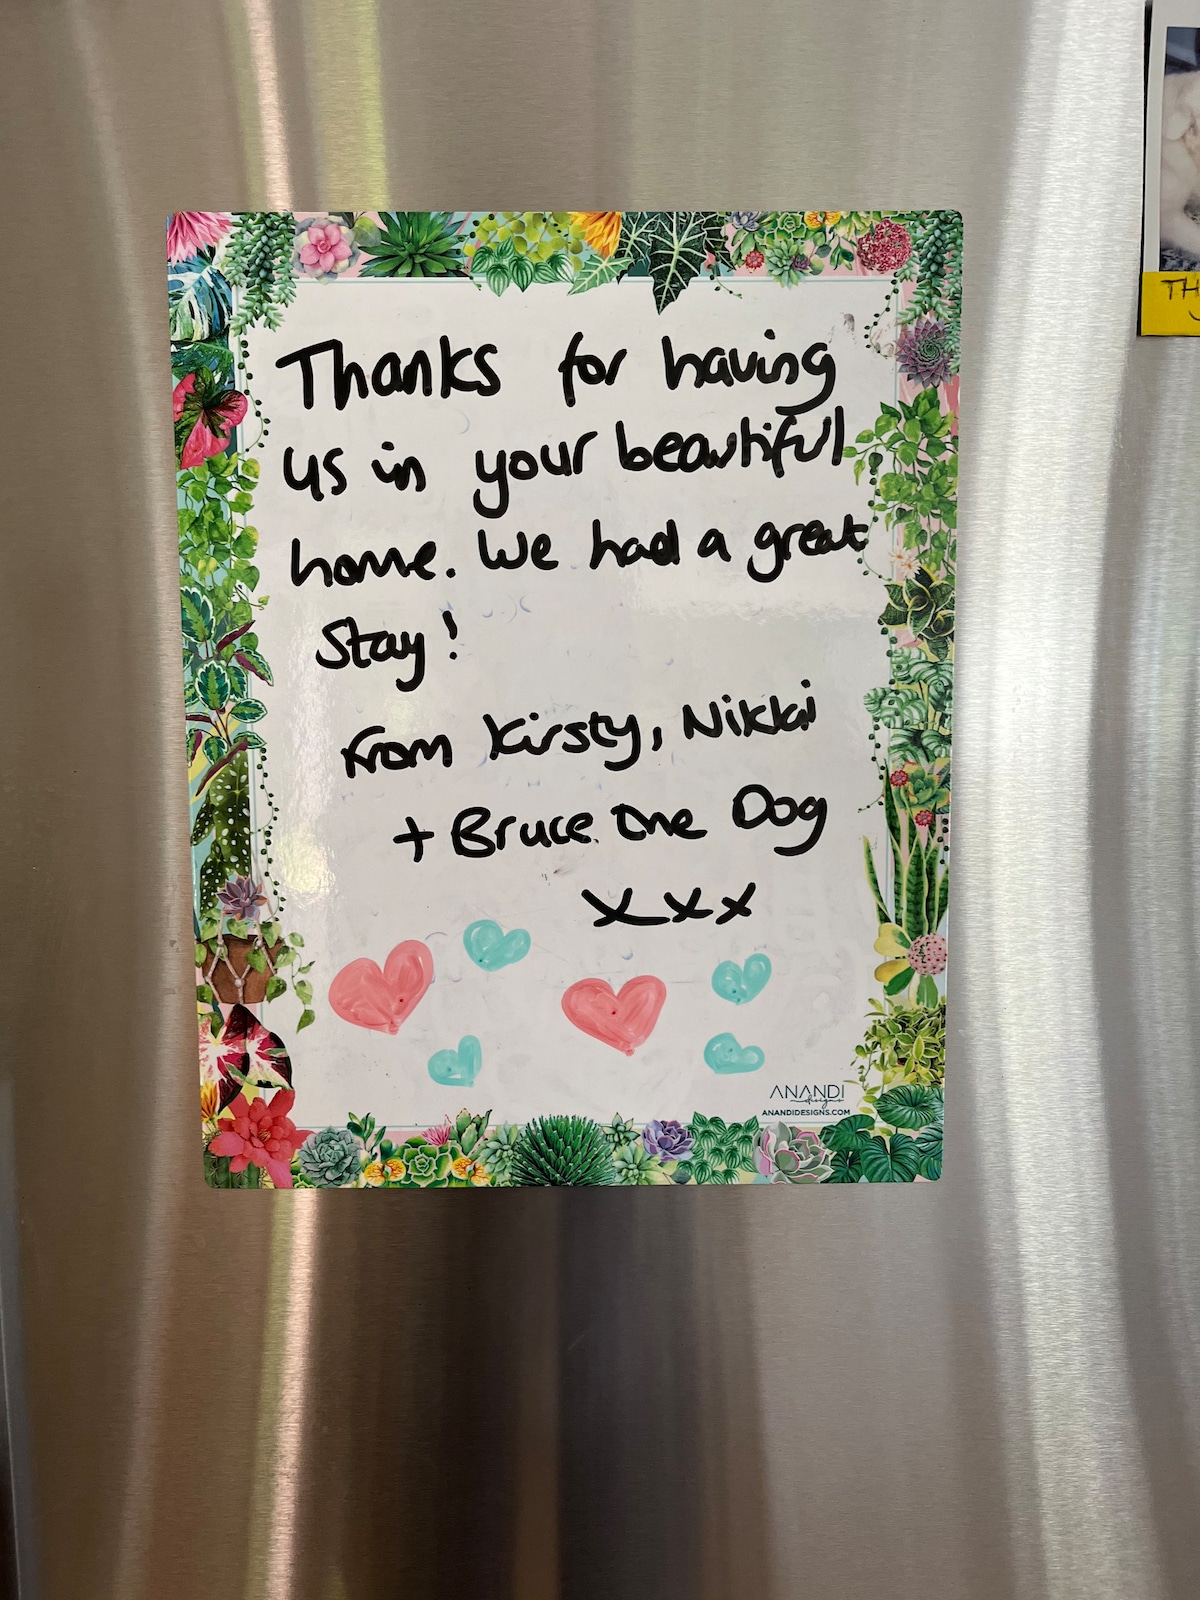 Thanks for having
us in your beautiful
home. We had a great
Stay!
From Kirsty, Nikki
+ Bruce. One Dog
xxx
ANANDI
designs
ANANDIDESIGNS.COM
TH